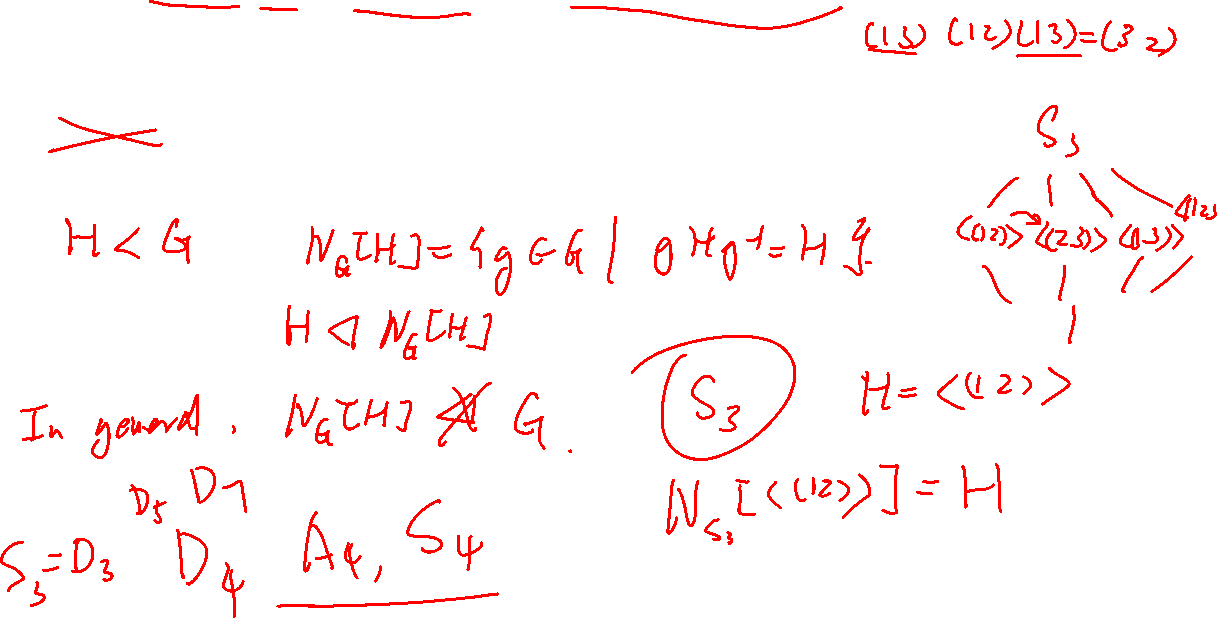 (13) (12)(13)=(3 2)
S₃
<(12)> <(23)> <(13)>
H < G N_G[H] = {g ∈ G | gHg⁻¹ = H}.
H ◁ N_G[H]
S₃ H = <(12)>
In general, N_G[H] ⋪ G.
N_{S₃}[<(12)>] = H
D₅ D₇
S₃=D₃ D₄ A₄, S₄